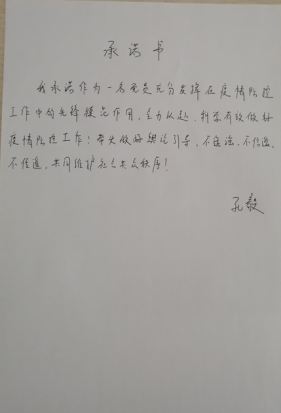 承诺书
我承诺作为一名党员充分发挥在疫情防控
工作中的先锋模范作用,全力以赴,科学有效做好
疫情防控工作!带头做好舆论引导,不造谣,不信谣,
不传谣,共同维护社会公众秩序!
孔毅